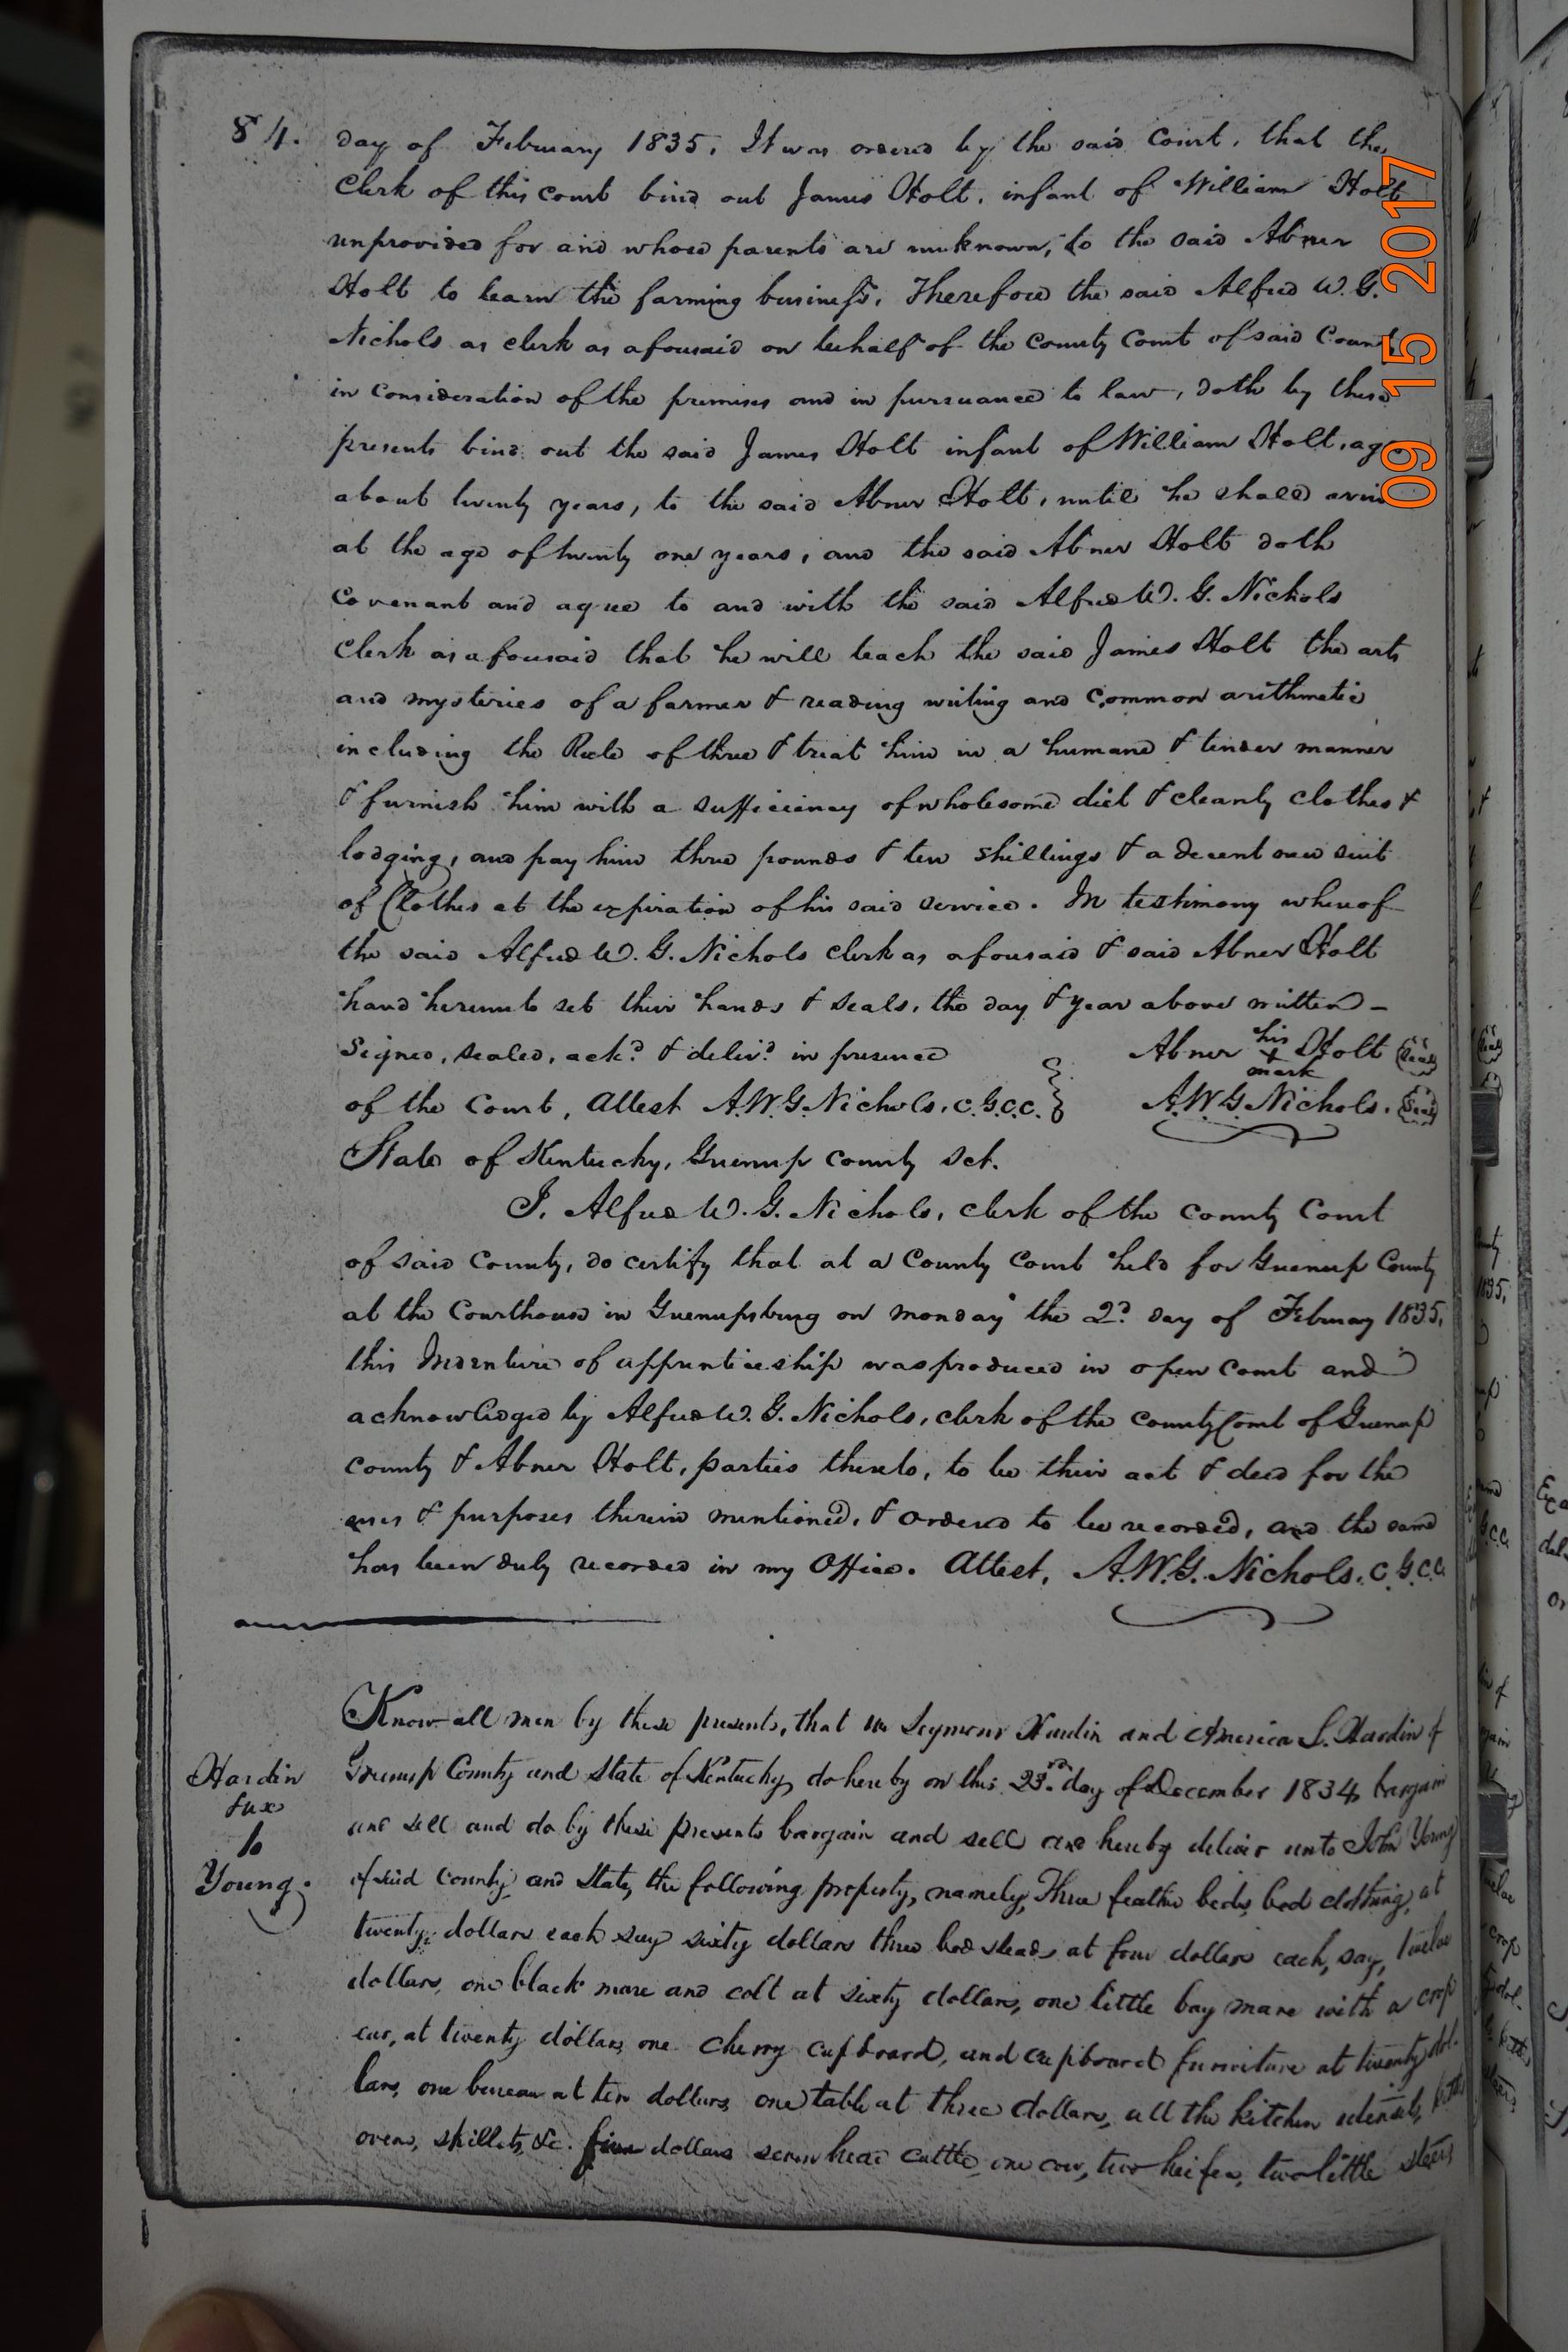 84. day of February 1835, It was ordered by the said Court, that the
Clerk of this court bind out James Holt, infant of William Holt
unprovided for and whose parents are unknown, to the said Abner
Holt to learn the farming business, Therefore the said Alfred W. G.
Nichols as clerk as aforesaid on behalf of the County Court of said County
in consideration of the premises and in pursuance to law, doth by these
presents bind out the said James Holt infant of William Holt, age
about twenty years, to the said Abner Holt, until he shall arrive
at the age of twenty one years, and the said Abner Holt doth
Covenant and agree to and with the said Alfred W. G. Nichols
Clerk as aforesaid that he will teach the said James Holt the arts
and mysteries of a farmer & reading writing and Common arithmetic
including the Rule of three & treat him in a humane & tender manner
& furnish him with a sufficiency of wholesome diet & cleanly clothes &
lodging, and pay him three pounds & ten shillings & a decent new suit
of Clothes at the expiration of his said service. In testimony whereof
the said Alfred W. G. Nichols clerk as aforesaid & said Abner Holt
hand hereunto set their hands & seals, the day & year above written -
Signed, sealed, ackd. & delivd. in presence
of the Court, Attest A.W.G. Nichols, C.G.C.C.
Abner his + mark Holt (Seal)
A.W.G. Nichols. (Seal)
State of Kentucky, Greenup County Sct.
I, Alfred W. G. Nichols, clerk of the County Court
of said County, do certify that at a County Court held for Greenup County
at the Courthouse in Greenupsburg on monday the 2d. day of February 1835,
this Indenture of apprenticeship was produced in open Court and
acknowledged by Alfred W. G. Nichols, clerk of the County Court of Greenup
County & Abner Holt, parties thereto, to be their act & deed for the
uses & purposes therein mentioned, & ordered to be recorded, and the same
has been duly recorded in my Office. Attest, A.W.G. Nichols, C.G.C.C.
Hardin
&ux
to
Young.
Know all men by these presents, that we Seymour Hardin and America S. Hardin of
Greenup County and State of Kentucky, do hereby on this 23rd. day of December 1834, bargain
and sell and do by these presents bargain and sell and hereby deliver unto John Young
of said County and State, the following property, namely, Three feather beds, bed clothing, at
twenty dollars each say sixty dollars three bedsteads at four dollars each, say, twelve
dollars, one black mare and colt at sixty dollars, one little bay mare with a crop
ear, at twenty dollars, one cherry cupboard, and cupboard furniture at twenty dol-
lars, one bureau at ten dollars, one table at three dollars, all the kitchen utensils,
ovens, skillets, &c. five dollars seven head cattle, one cow, two heifers, two little steers
09 15 2017